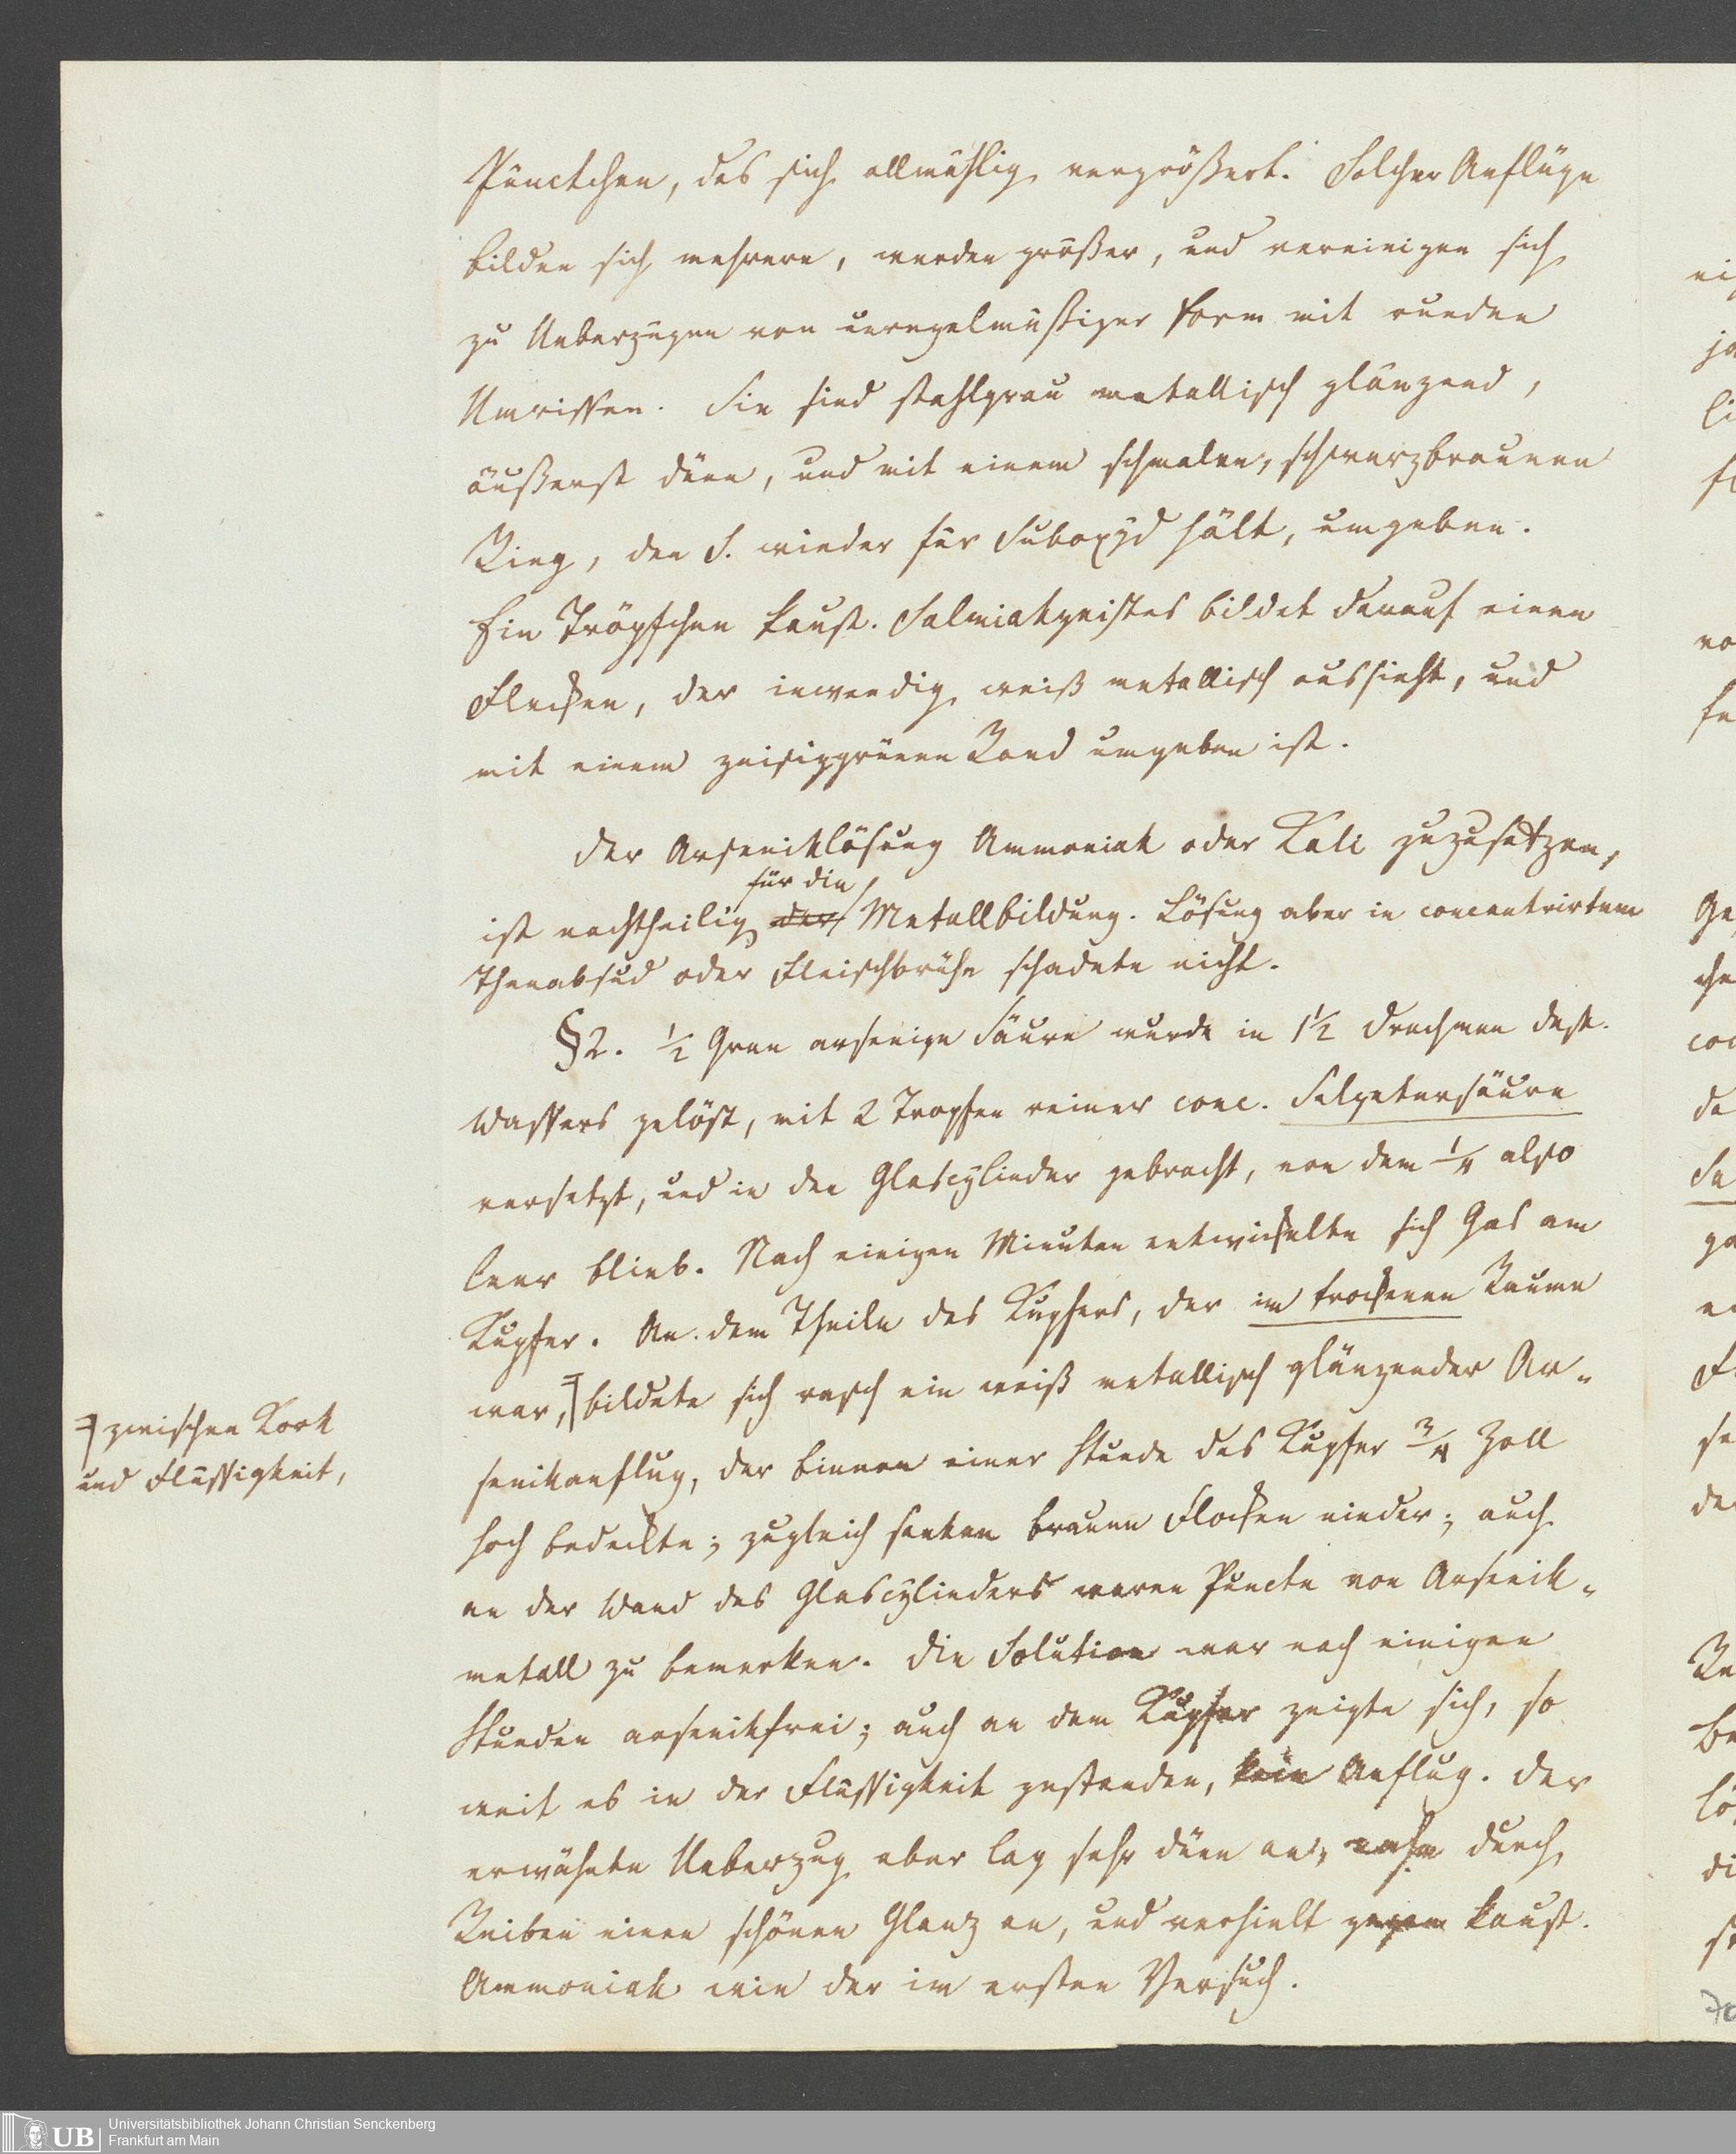 Pünctchen, das sich allmählig vergrößert. Solcher Anflüge
bilden sich mehrere, werden größer, und vereinigen sich
zu Ueberzügen von unregelmäßiger Form mit runden
Umrissen. Sie sind stahlgrau metallisch glänzend,
äußerst dünn, und mit einem schmalen, schwarzbraunen
Ring, den S. wieder für Suboxyd hält, umgeben.
Ein Tröpfchen kaust. Salmiakgeistes bildet darauf einen
Flecken, der inwendig weiß metallisch aussieht, und
mit einem zeisiggrünen Rand umgeben ist.
Der Arseniklösung Ammoniak oder Kali zuzusetzen,
für die
ist nachtheilig der Metallbildung. Lösung aber in concentrirtem
Theeabsud oder Fleischbrühe schadete nicht.
§2. ½ Gran arsenige Säure wurde in 1½ Drachmen dest.
Wassers gelöst, mit 2 Tropfen reiner conc. Salpetersäure
versetzt, und in den Glascylinder gebracht, von dem ¼ also
leer blieb. Nach einigen Minuten entwickelte sich Gas am
Kupfer. An dem Theile des Kupfers, der im trockenen Raume
war, bildete sich rasch ein weiß metallisch glänzender Ar-
zwischen Kork
und Flüssigkeit,
senikanflug, der binnen einer Stunde das Kupfer ¾ Zoll
hoch bedeckte; zugleich sanken braune Flocken nieder; auch
an der Wand des Glascylinders waren Puncte von Arsenik-
metall zu bemerken. Die Solution war nach einigen
Stunden arsenikfrei; auch an dem Kupfer zeigte sich, so
weit es in der Flüssigkeit gestanden, kein Anflug. Der
erwähnte Ueberzug aber lag sehr dünn an, nahm durch
Reiben einen schönen Glanz an, und verhielt gegen kaust.
Ammoniak wie der im ersten Versuch.
UB
Universitätsbibliothek Johann Christian Senckenberg
Frankfurt am Main